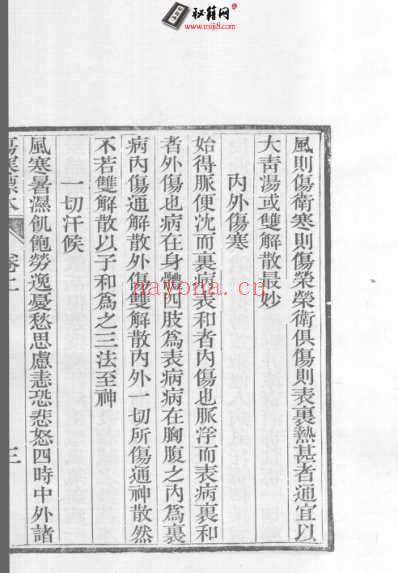 秘籍网
www.miji8.com
風則傷衛寒則傷榮榮衛俱傷則表裏熱甚者通宜以
大青湯或雙解散最妙
內外傷寒
始得脈便沈而裏病表和者內傷也脈浮而表病裏和
者外傷也病在身體四肢爲表病病在胸腹之內爲裏
病內傷通解散外傷雙解散內外一切所傷通神散然
不若雙解散以子和爲之三法至神
一切汗候
風寒暑濕飢飽勞逸憂愁思慮恚恐悲怒四時中外諸
傷寒標本 卷二 三
nayona.cn